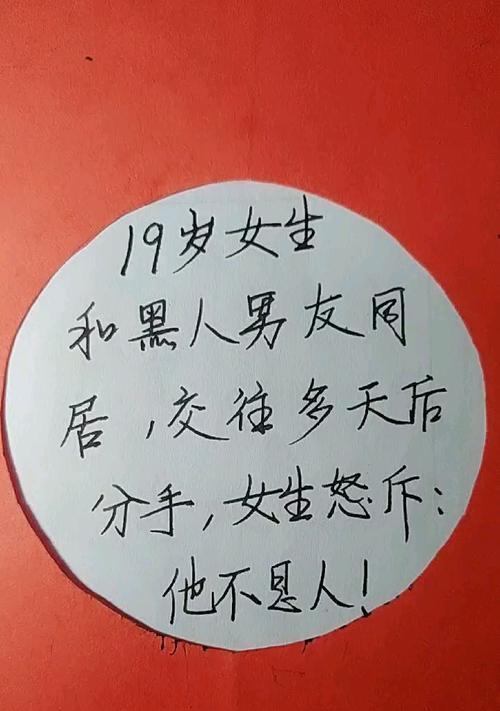 19岁女生
和黑人男友同
居,交往多天后
分手,女生怒斥:
他不是人!